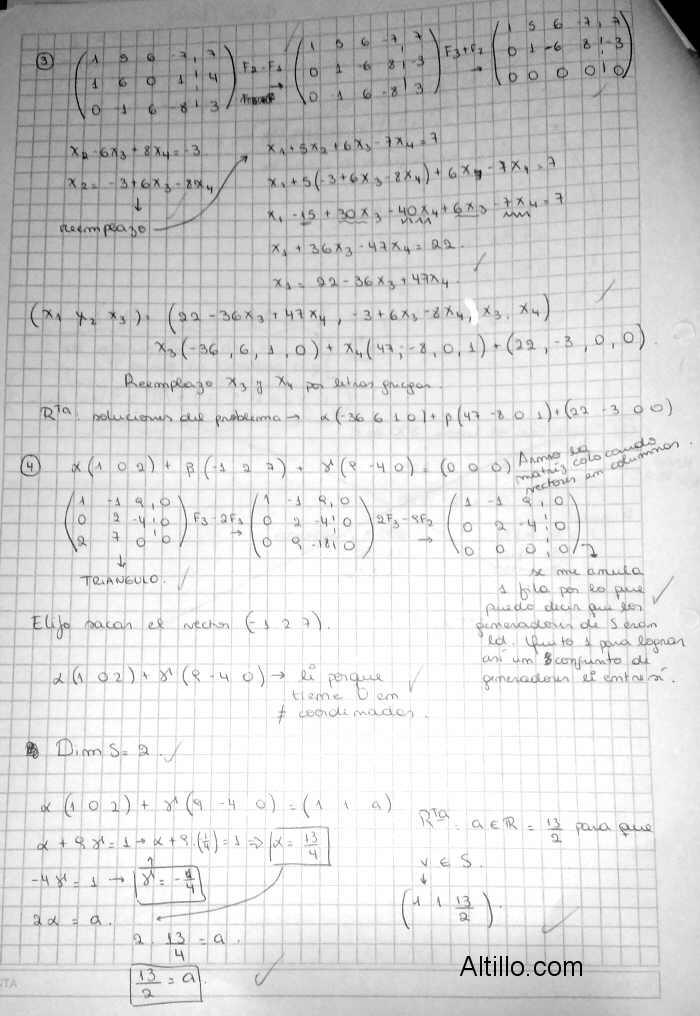 3 ( 1 5 6 -7 ¦ 7 ) F2-F1 → ( 1 5 6 -7 ¦ 7 ) F3+F2 → ( 1 5 6 -7 ¦ 7 )
( 1 6 0 1 ¦ 4 ) ( 0 1 -6 8 ¦ -3 ) ( 0 1 -6 8 ¦ -3 )
( 0 -1 6 -8 ¦ 3 ) ( 0 -1 6 -8 ¦ 3 ) ( 0 0 0 0 ¦ 0 )
x2 - 6x3 + 8x4 = -3
x2 = -3 + 6x3 - 8x4
↓
reemplazo
x1 + 5x2 + 6x3 - 7x4 = 7
x1 + 5(-3 + 6x3 - 8x4) + 6x3 - 7x4 = 7
x1 - 15 + 30x3 - 40x4 + 6x3 - 7x4 = 7
x1 + 36x3 - 47x4 = 22.
x1 = 22 - 36x3 + 47x4
(x1 x2 x3) = (22 - 36x3 + 47x4, -3 + 6x3 - 8x4, x3, x4)
x3(-36, 6, 1, 0) + x4(47, -8, 0, 1) + (22, -3, 0, 0).
Reemplazo x3 y x4 por letras griegas.
Rta: soluciones del problema → α(-36 6 1 0) + β(47 -8 0 1) + (22 -3 0 0)
4 α(1 0 2) + β(-1 2 7) + γ(9 -4 0) = (0 0 0) Armo la
matriz colocando
vectores en columnas.
( 1 -1 9 ¦ 0 ) F3-2F1 → ( 1 -1 9 ¦ 0 ) 2F3-9F2 → ( 1 -1 9 ¦ 0 )
( 0 2 -4 ¦ 0 ) ( 0 2 -4 ¦ 0 ) ( 0 2 -4 ¦ 0 )
( 2 7 0 ¦ 0 ) ( 0 9 -18 ¦ 0 ) ( 0 0 0 ¦ 0 )
↓
TRIANGULO.
se me anula
1 fila por lo que
puedo decir que los
generadores de S eran
ld. Quito 1 para lograr
así un conjunto de
generadores li entre sí.
Elijo sacar el vector (-1 2 7).
α(1 0 2) + γ(9 -4 0) → li porque
tiene 0 en
≠ coordinadas.
Dim S = 2.
α(1 0 2) + γ(9 -4 0) = (1 1 a)
α + 9γ = 1 → α + 9.(-1/4) = 1 ⇒ α = 13/4
-4γ = 1 → γ = -1/4
2α = a.
2 . 13/4 = a.
13/2 = a.
Rta: a ∈ ℝ = 13/2 para que
v ∈ S.
↓
(1 1 13/2).
Altillo.com